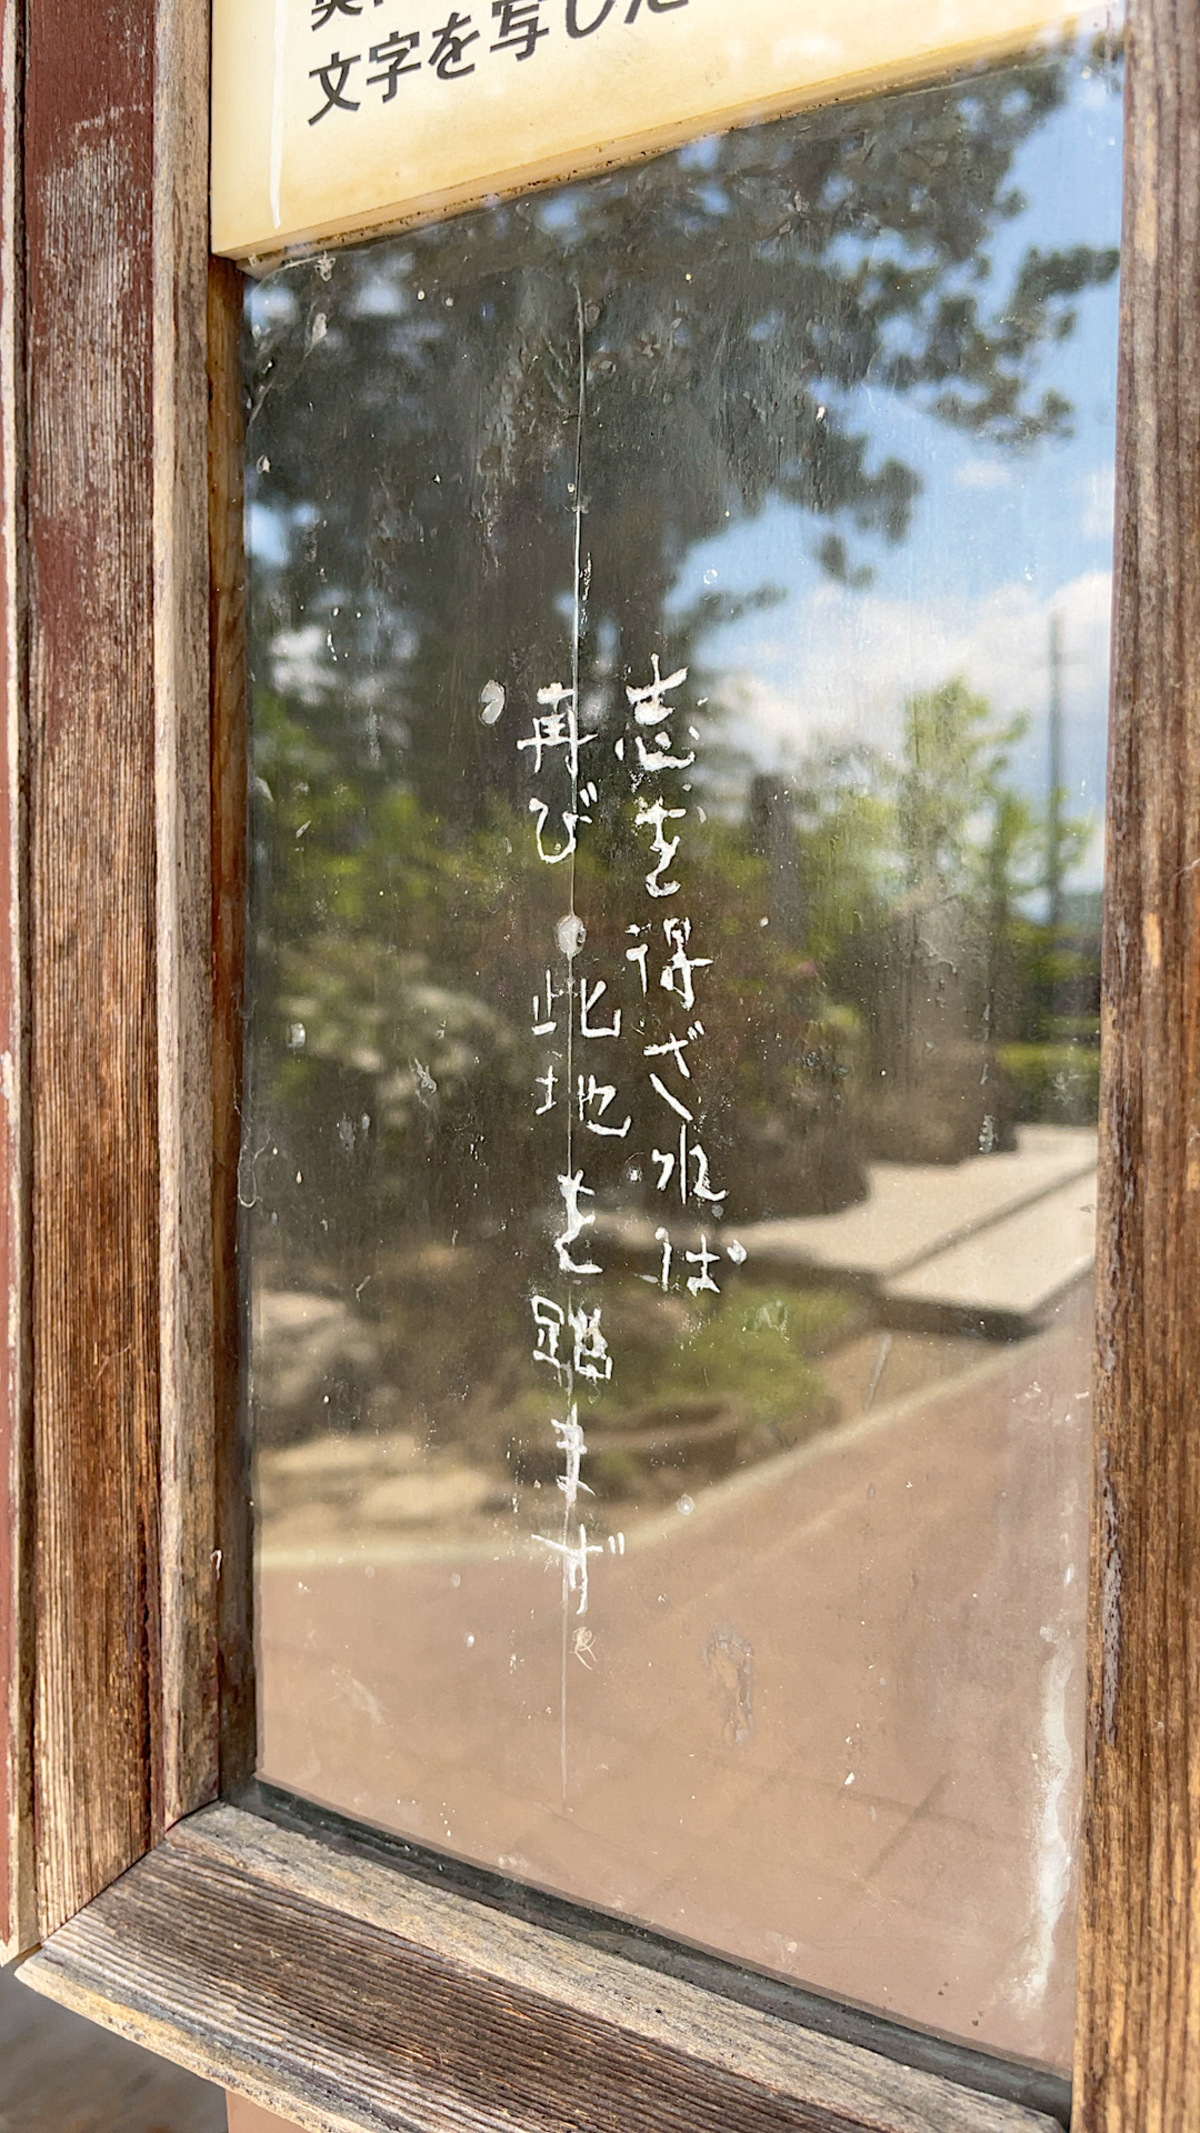 文字を写した
志を得ざれば
再び此地を踏まず